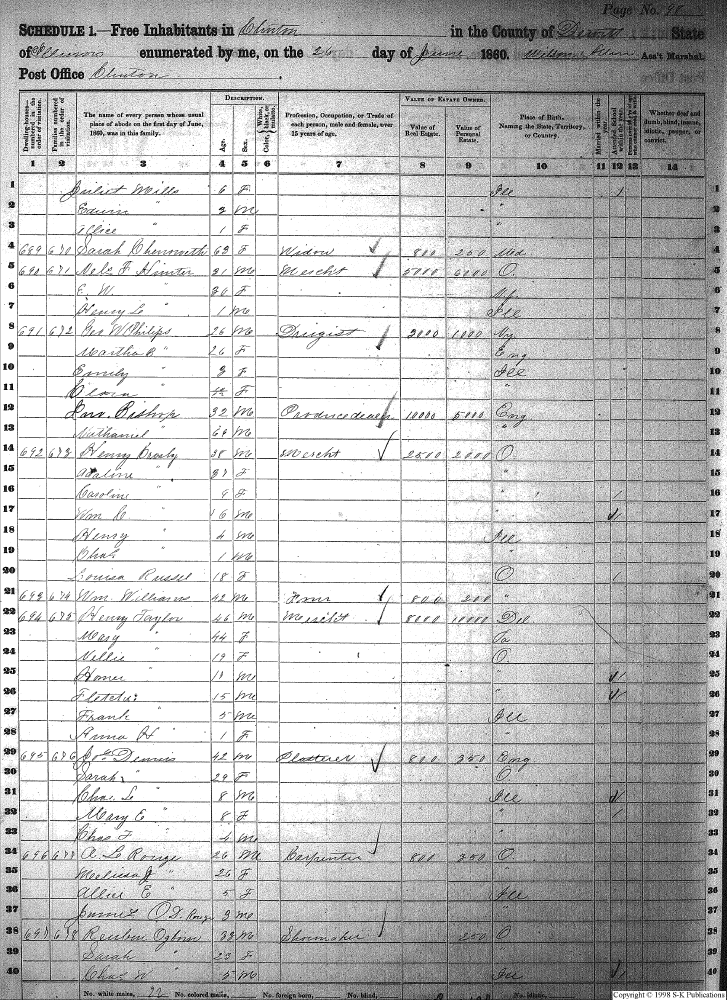 Page No. 90
SCHEDULE 1.—Free Inhabitants in Clinton in the County of Dewitt State
of Illinois enumerated by me, on the 26 day of June 1860. William Ass't Marshal.
Post Office Clinton.
DESCRIPTION. VALUE OF ESTATE OWNED.
Dwelling-houses—numbered in the order of visitation. Families numbered in the order of visitation. The name of every person whose usual place of abode on the first day of June, 1860, was in this family. Age. Sex. Color, White, black, or mulatto. Profession, Occupation, or Trade of each person, male and female, over 15 years of age. Value of Real Estate. Value of Personal Estate. Place of Birth, Naming the State, Territory, or Country. Married within the year. Attended School within the year. Whether deaf and dumb, blind, insane, idiotic, pauper, or convict.
1 2 3 4 5 6 7 8 9 10 11 12 13 14
1 Juliet Mills 6 F Ill / 1
2 Edwin " 3 M " 2
3 Allice " 1 F " 3
4 689 670 Sarah Chenoweth 63 F Widow ✓ 800 250 Md 4
5 690 671 Nels F Hunter 31 M Mercht ✓ 5000 6000 O. 5
6 E. W. " 30 F 6
7 Henry L " 1 M Ill 7
8 691 672 Geo W Philips 26 M Drugist ✓ 2000 1000 Ny 8
9 Martha R " 26 F Eng 9
10 Emily " 3 F Ill 10
11 Clara " F " 11
12 Bishop 32 M Produce dealer ✓ 10000 5000 Eng 12
13 Nathaniel " 64 M " 13
14 692 673 Henry Brosly 38 M Mercht ✓ 2500 2000 O. 14
15 Adaline " 37 F " 15
16 Caroline " 9 F " / 16
17 Wm R " 6 M " / 17
18 Henry " 4 M Ill 18
19 Chas " 1 M " 19
20 Louisa Russel 18 F O / 20
21 693 674 Wm. Williams 42 M ✓ 800 200 " 21
22 694 675 Henry Taylor 46 M Mercht ✓ 8000 10000 Del 22
23 Mary " 44 F Pa 23
24 Nellie " 19 F O. 24
25 Homer " M " / 25
26 Fletcher 15 M " / 26
27 Frank " 5 M Ill 27
28 Anna H " 1 F " 28
29 695 676 Dennis 42 M Plasterer ✓ 800 350 Eng 29
30 Sarah " 29 F O 30
31 Chas. L " 8 M Ill / 31
32 Mary E " 8 F " / 32
33 Chas F " 4 M " 33
34 696 677 A. L Rouge 26 M Carpenter ✓ 800 350 O. 34
35 Melissa J " 26 F " 35
36 Allice E " 5 F Ill 36
37 James O. D. Rouge 3 M " 37
38 697 678 Reuben Ogborn 33 M Shoemaker 250 O 38
39 Sarah " 23 F " 39
40 Chas W " 5 M Ill / 40
No. white males, 22 No. colored males, No. foreign born, No. blind,
Copyright © 1998 S-K Publications